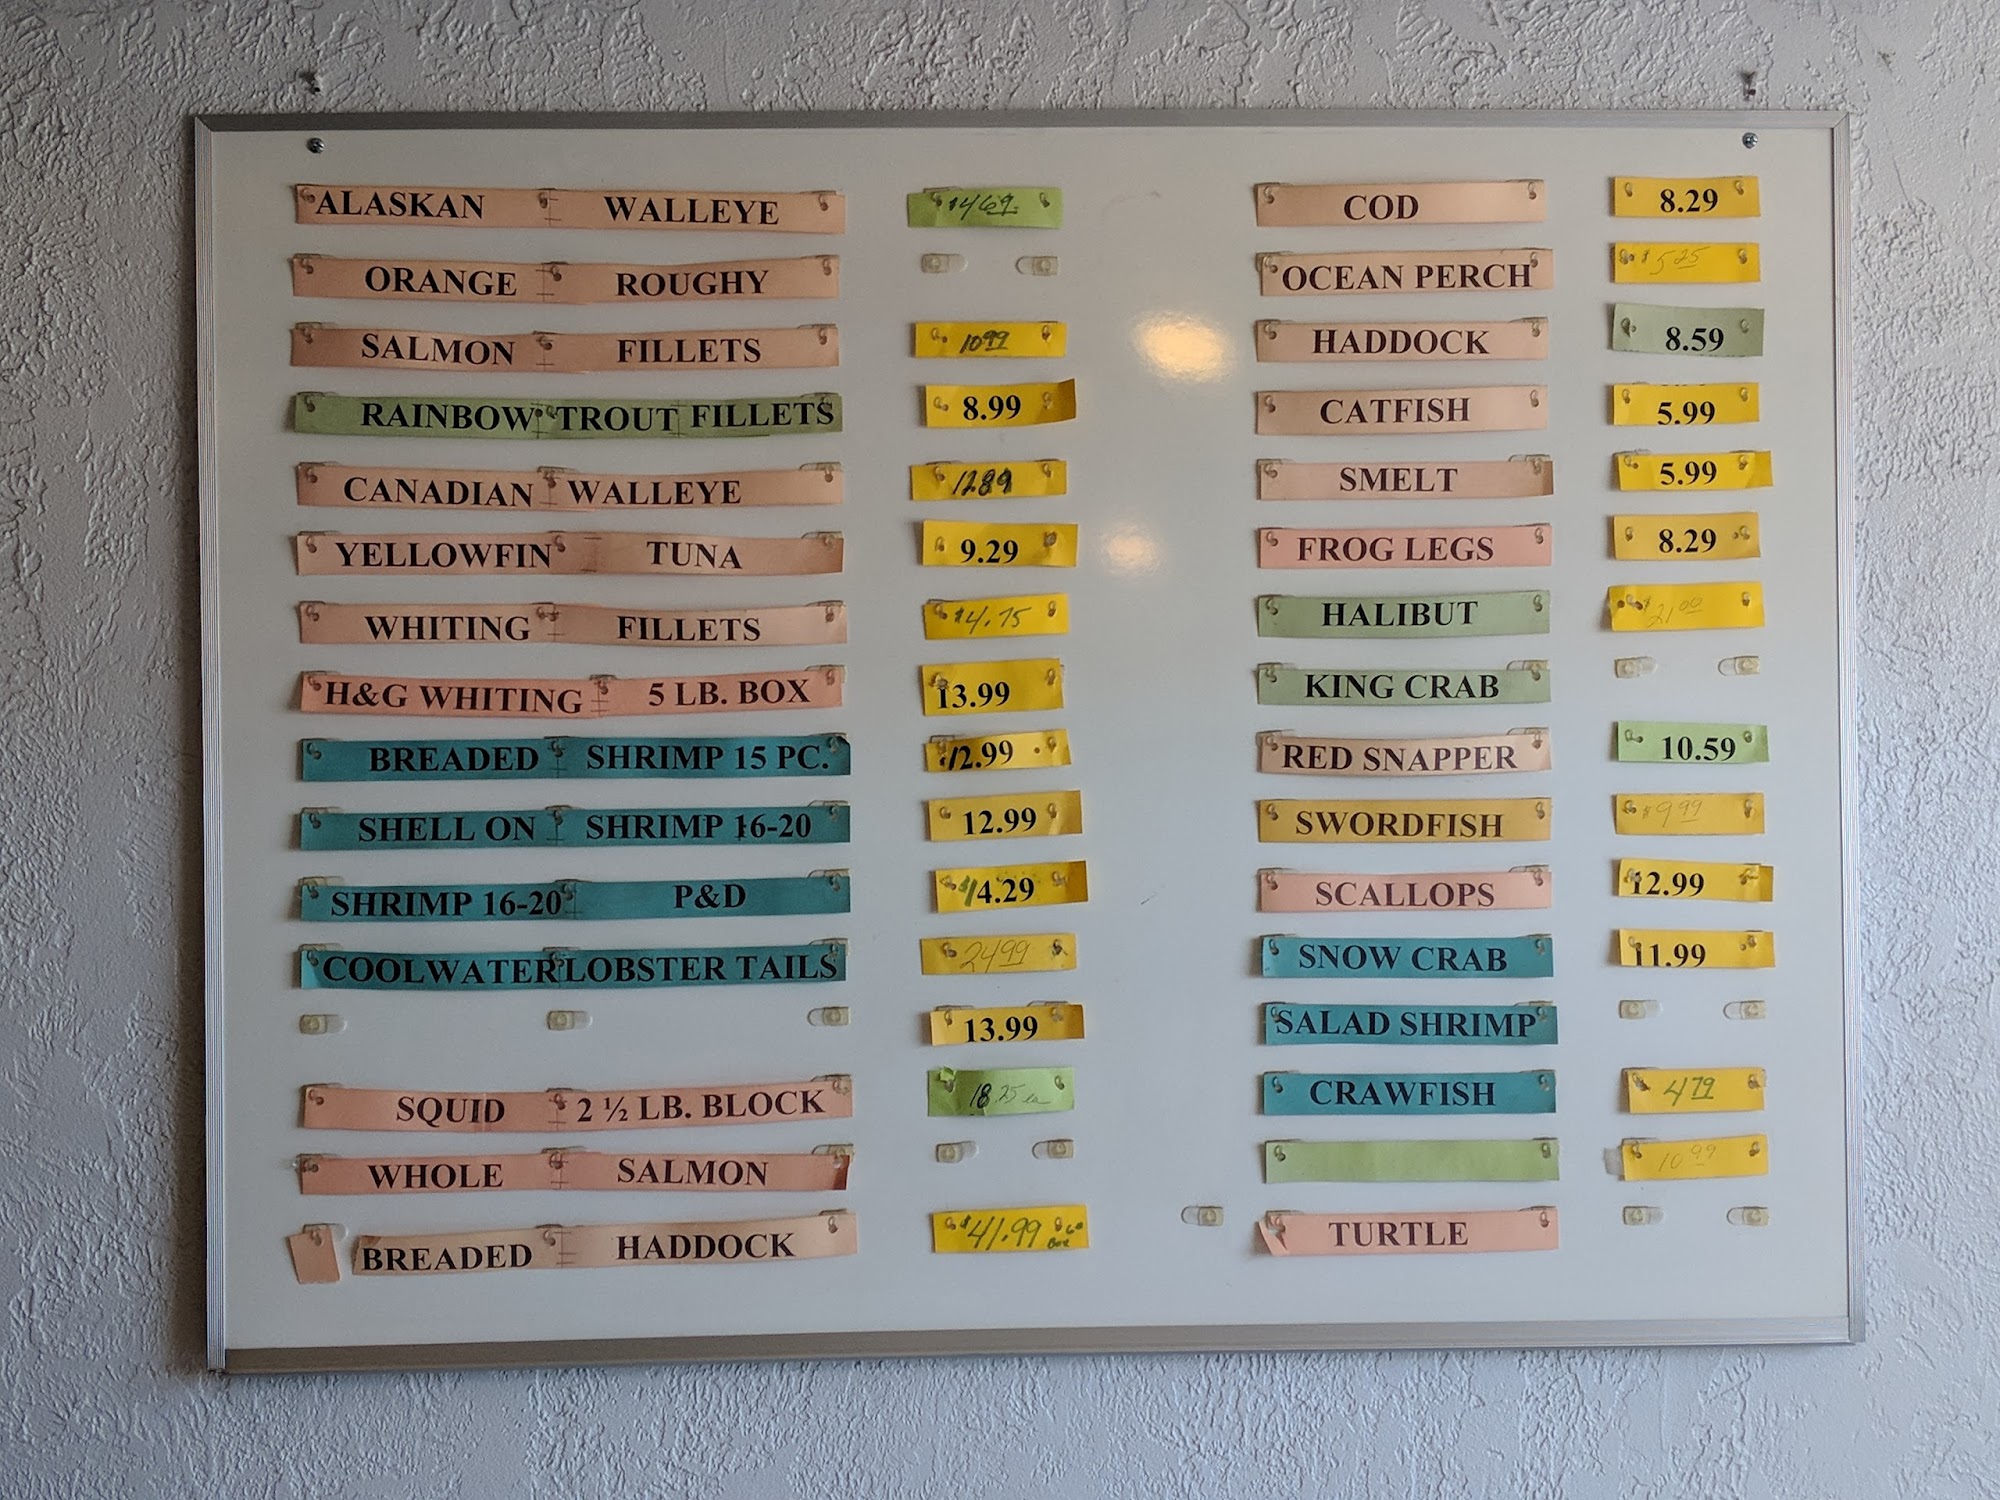 ALASKAN WALLEYE $4.69
ORANGE ROUGHY
SALMON FILLETS 10.99
RAINBOW TROUT FILLETS 8.99
CANADIAN WALLEYE 12.89
YELLOWFIN TUNA 9.29
WHITING FILLETS $4.75
H&G WHITING 5 LB. BOX 13.99
BREADED SHRIMP 15 PC. 12.99
SHELL ON SHRIMP 16-20 12.99
SHRIMP 16-20 P&D $14.29
COOLWATER LOBSTER TAILS 24.99
13.99
SQUID 2 ½ LB. BLOCK 18.25 ea
WHOLE SALMON
BREADED HADDOCK $41.99
COD 8.29
OCEAN PERCH $5.25
HADDOCK 8.59
CATFISH 5.99
SMELT 5.99
FROG LEGS 8.29
HALIBUT $21.00
KING CRAB
RED SNAPPER 10.59
SWORDFISH $9.99
SCALLOPS 12.99
SNOW CRAB 11.99
SALAD SHRIMP
CRAWFISH 4.79
10.99
TURTLE